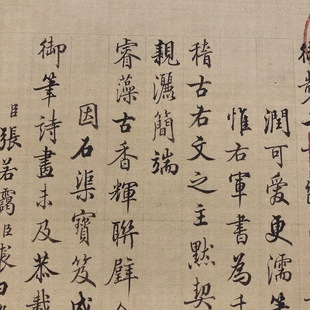 潤可愛更濡筆
惟右軍書為千
稽古右文之主默契
親灑簡端
睿藻古香輝聯璧
因石渠寶笈成
御筆詩畫未及恭載
臣張若靄臣裘曰